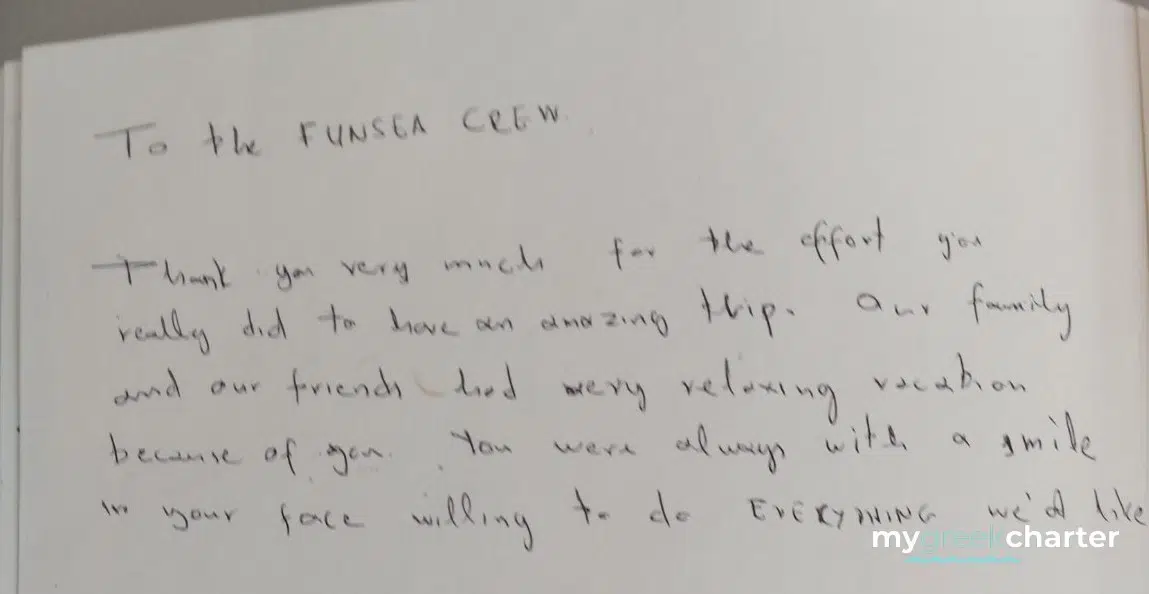 To the FUNSEA CREW.
Thank you very much for the effort you
really did to have an amazing trip. Our family
and our friends had very relaxing vacation
because of you. You were always with a smile
in your face willing to do EVERYTHING we'd like
mygreekcharter